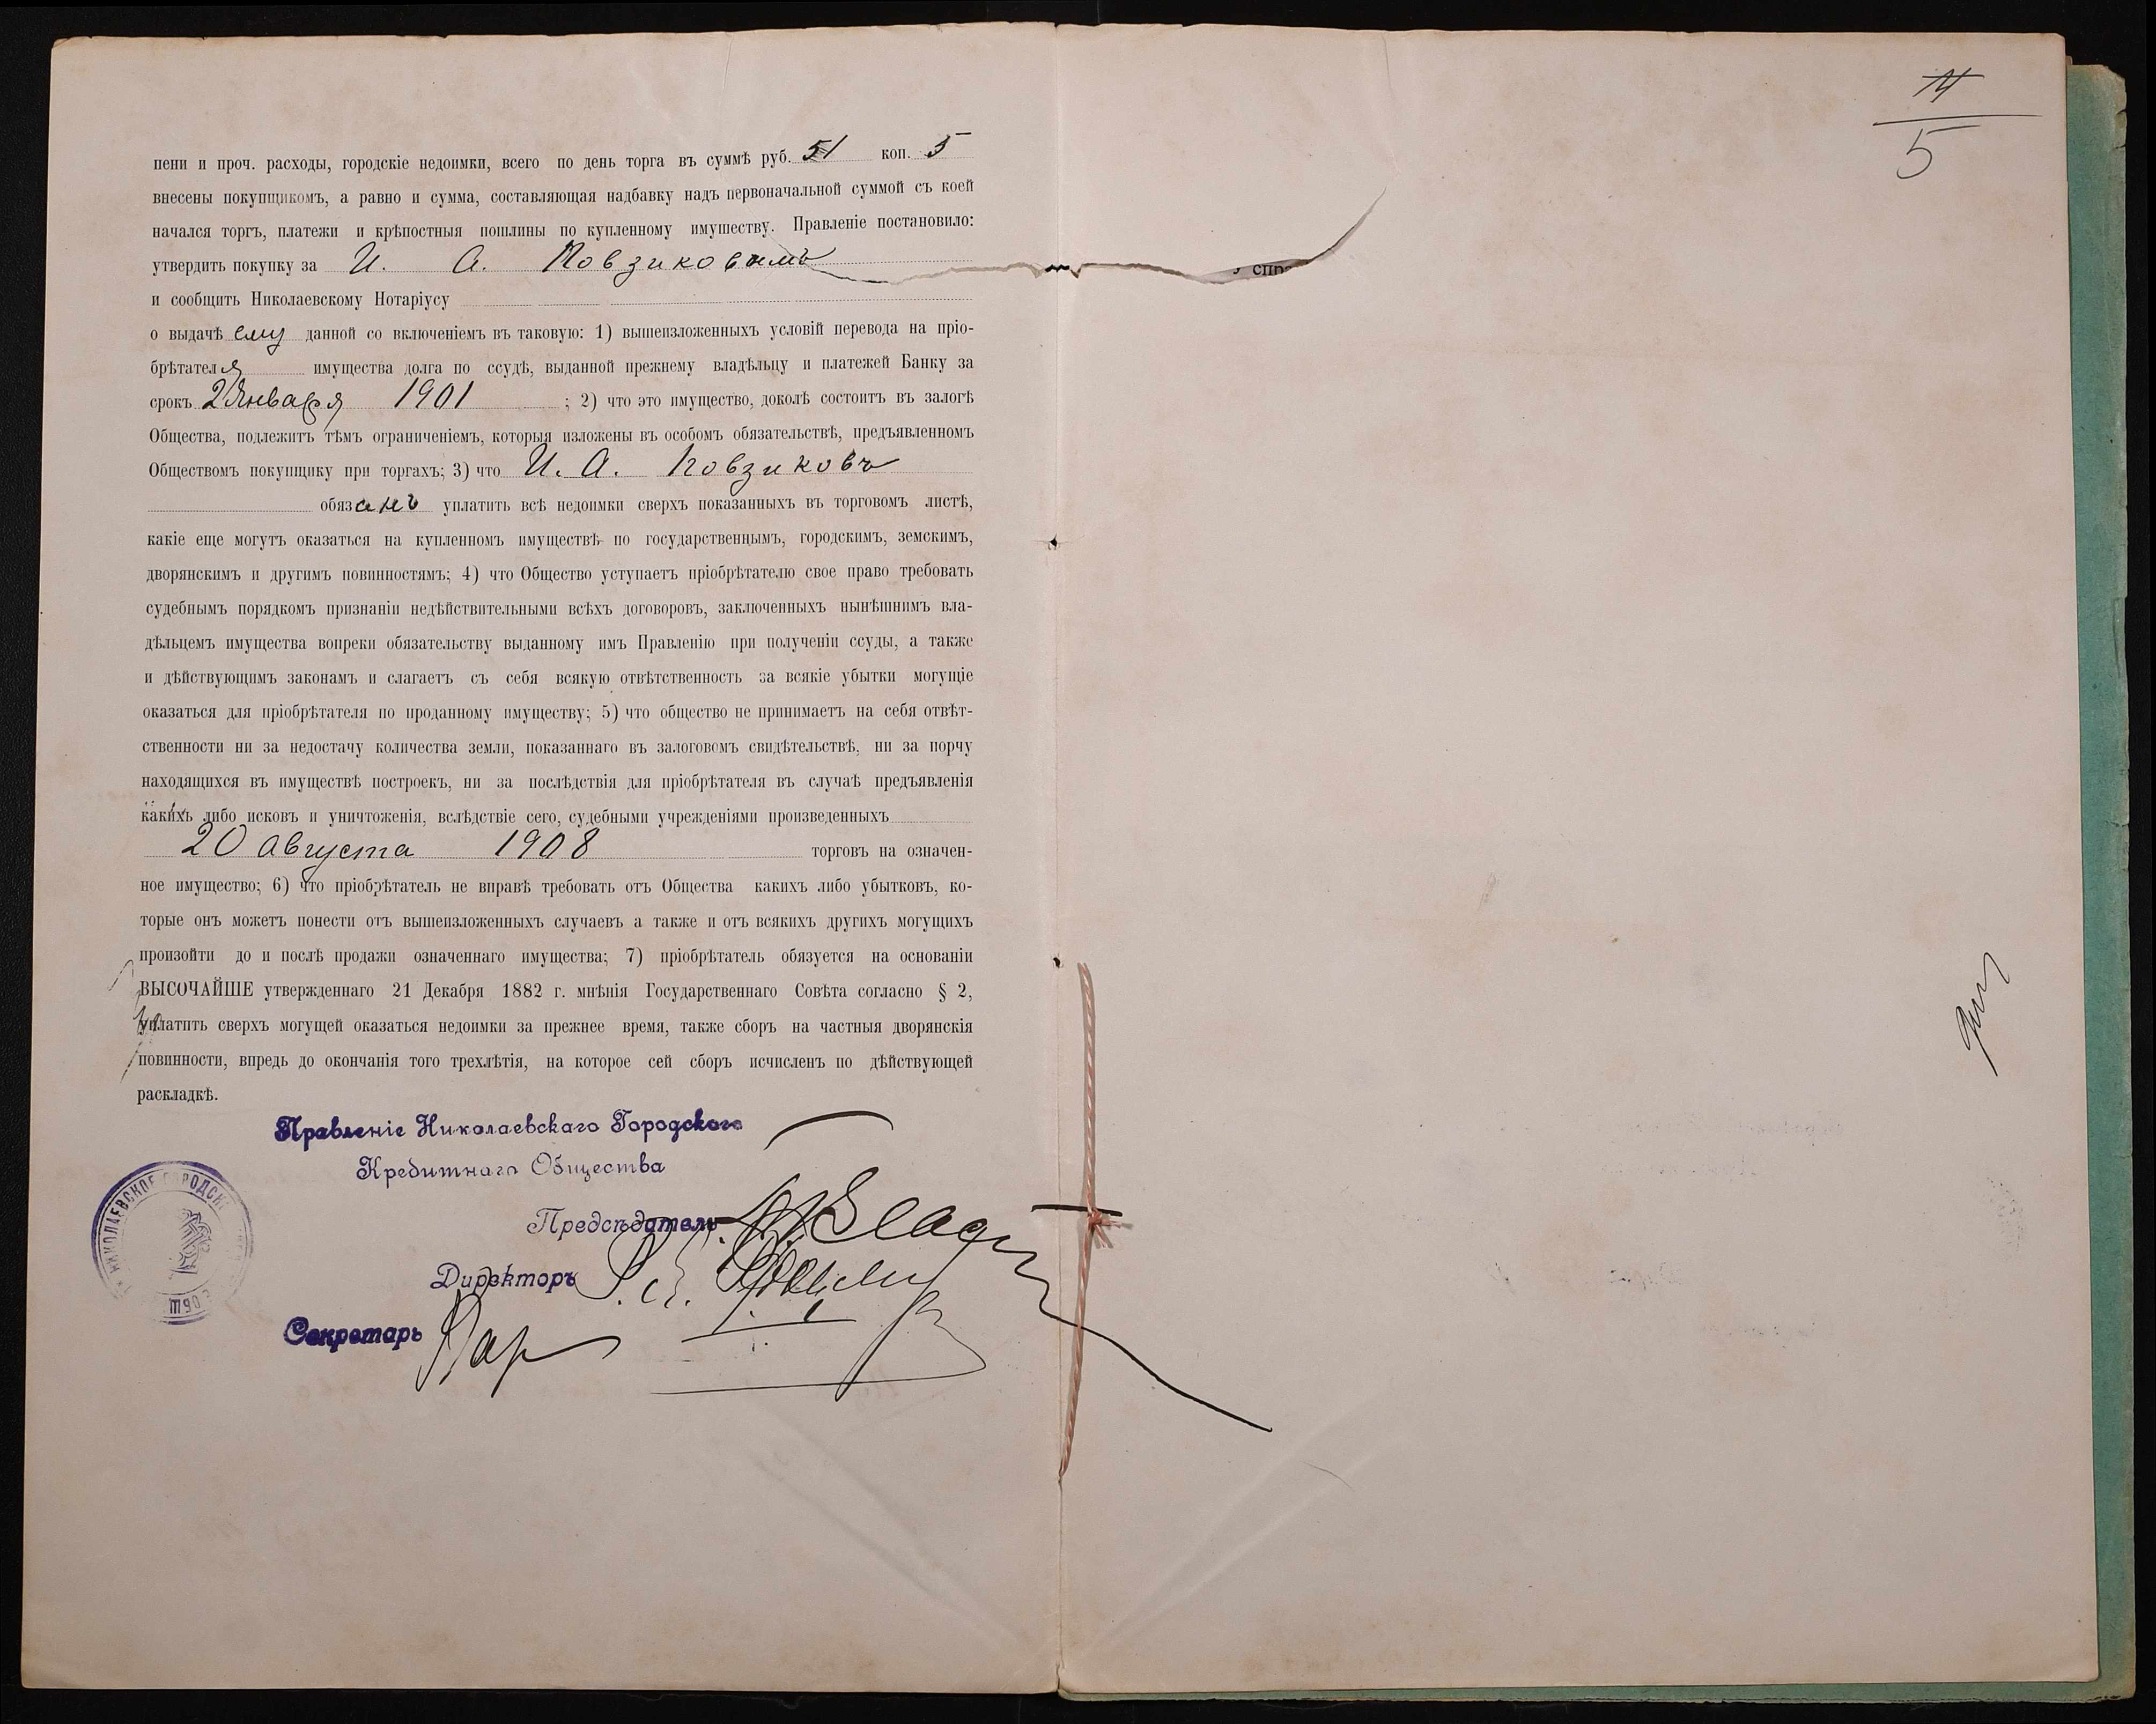 пени и проч. расходы, городскіе недоимки, всего по день торга въ суммѣ руб. 51 коп. 5
внесены покупщикомъ, а равно и сумма, составляющая надбавку надъ первоначальной суммой съ коей
начался торгъ, платежи и крѣпостныя пошлины по купленному имуществу. Правленіе постановило:
утвердить покупку за И. А. Повзиковымъ
и сообщить Николаевскому Нотаріусу
о выдачѣ ему данной со включеніемъ въ таковую: 1) вышеизложенныхъ условій перевода на прiо-
брѣтателя имущества долга по ссудѣ, выданной прежнему владѣльцу и платежей Банку за
срокъ 2 Января 1901 ; 2) что это имущество, доколѣ состоитъ въ залогѣ
Общества, подлежитъ тѣмъ ограниченіемъ, которыя изложены въ особомъ обязательствѣ, предъявленномъ
Обществомъ покупщику при торгахъ; 3) что И. А. Повзиковъ
обязанъ уплатить всѣ недоимки сверхъ показанныхъ въ торговомъ листѣ,
какіе еще могутъ оказаться на купленномъ имуществѣ по государственнымъ, городскимъ, земскимъ,
дворянскимъ и другимъ повинностямъ; 4) что Общество уступаетъ пріобрѣтателю свое право требовать
судебнымъ порядкомъ признаніи недѣйствительными всѣхъ договоровъ, заключенныхъ нынѣшнимъ вла-
дѣльцемъ имущества вопреки обязательству выданному имъ Правленію при полученіи ссуды, а также
и дѣйствующимъ законамъ и слагаетъ съ себя всякую отвѣтственность за всякіе убытки могущіе
оказаться для пріобрѣтателя по проданному имуществу; 5) что общество не принимаетъ на себя отвѣт-
ственности ни за недостачу количества земли, показаннаго въ залоговомъ свидѣтельствѣ, ни за порчу
находящихся въ имуществѣ построекъ, ни за послѣдствія для пріобрѣтателя въ случаѣ предъявленія
какихъ либо исковъ и уничтоженія, вслѣдствіе сего, судебными учрежденіями произведенныхъ
20 Августа 1908 торговъ на означен-
ное имущество; 6) что пріобрѣтатель не вправѣ требовать отъ Общества какихъ либо убытковъ, ко-
торые онъ можетъ понести отъ вышеизложенныхъ случаевъ а также и отъ всякихъ другихъ могущихъ
произойти до и послѣ продажи означеннаго имущества; 7) пріобрѣтатель обязуется на основаніи
ВЫСОЧАЙШЕ утвержденнаго 21 Декабря 1882 г. мнѣнія Государственнаго Совѣта согласно § 2,
уплатить сверхъ могущей оказаться недоимки за прежнее время, также сборъ на частныя дворянскія
повинности, впредь до окончанія того трехлѣтія, на которое сей сборъ исчисленъ по дѣйствующей
раскладкѣ.
Правленіе Николаевскаго Городского
Кредитнаго Общества
Предсѣдатель
Директоръ
Секретарь
НИКОЛАЕВСКОЕ ГОРОДСК
5